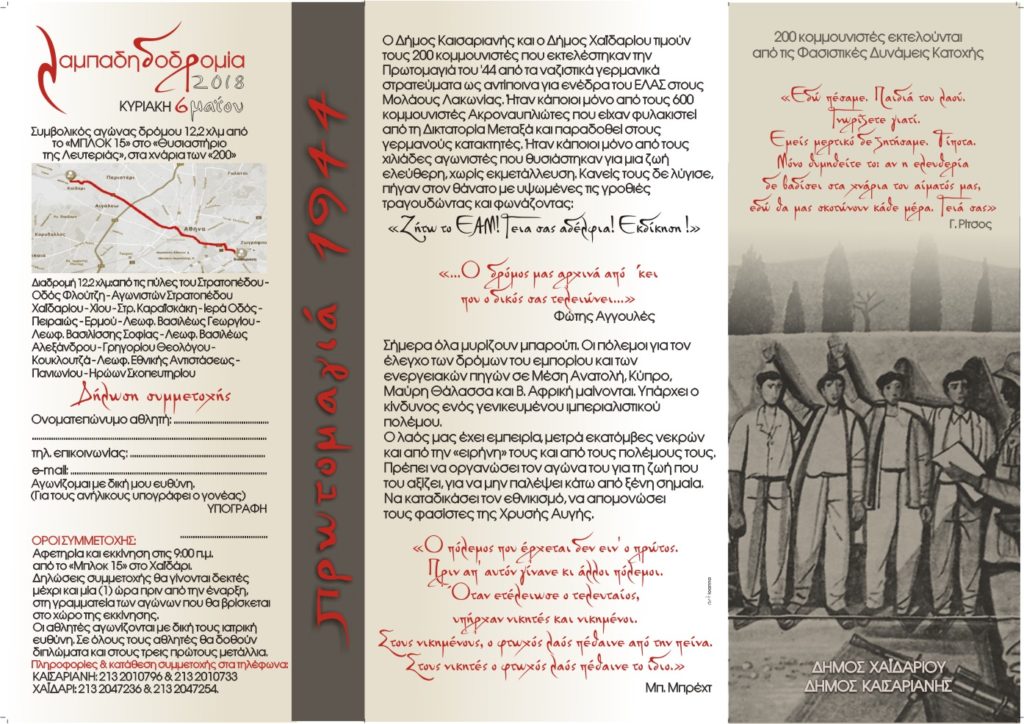 λαμπαδηδοδρομία
2018
ΚΥΡΙΑΚΗ 6 μαΐου
Συμβολικός αγώνας δρόμου 12,2 χλμ από
το «ΜΠΛΟΚ 15» στο «Θυσιαστήριο
της Λευτεριάς», στα χνάρια των «200»
Περιστέρι
Χαϊδάρι
Αιγάλεω
Αθήνα
Ζωγράφου
Διαδρομή 12,2 χλμ:από τις πύλες του Στρατοπέδου -
Οδός Φλούτζη - Αγωνιστών Στρατοπέδου
Χαϊδαρίου - Χίου - Στρ. Καραΐσκάκη - Ιερά Οδός -
Πειραιώς - Ερμού - Λεωφ. Βασιλέως Γεωργίου -
Λεωφ. Βασιλίσσης Σοφίας - Λεωφ. Βασιλέως
Αλεξάνδρου - Γρηγορίου Θεολόγου -
Κουκλουτζά - Λεωφ. Εθνικής Αντιστάσεως -
Πανιωνίου - Ηρώων Σκοπευτηρίου
Δήλωση συμμετοχής
Ονοματεπώνυμο αθλητή: ..............................
..............................
τηλ. επικοινωνίας: ..............................
e-mail: ..............................
Αγωνίζομαι με δική μου ευθύνη.
(Για τους ανήλικους υπογράφει ο γονέας)
ΥΠΟΓΡΑΦΗ
ΟΡΟΙ ΣΥΜΜΕΤΟΧΗΣ:
Αφετηρία και εκκίνηση στις 9:00 π.μ.
από το «Μπλοκ 15» στο Χαϊδάρι.
Δηλώσεις συμμετοχής θα γίνονται δεκτές
μέχρι και μία (1) ώρα πριν από την έναρξη,
στη γραμματεία των αγώνων που θα βρίσκεται
στο χώρο της εκκίνησης.
Οι αθλητές αγωνίζονται με δική τους ιατρική
ευθύνη. Σε όλους τους αθλητές θα δοθούν
διπλώματα και στους τρεις πρώτους μετάλλια.
Πληροφορίες & κατάθεση συμμετοχής στα τηλέφωνα:
ΚΑΙΣΑΡΙΑΝΗ: 213 2010796 & 213 2010733
ΧΑΪΔΑΡΙ: 213 2047236 & 213 2047254.
Πρωτομαγιά 1944
Ο Δήμος Καισαριανής και ο Δήμος Χαϊδαρίου τιμούν
τους 200 κομμουνιστές που εκτελέστηκαν την
Πρωτομαγιά του '44 από τα ναζιστικά γερμανικά
στρατεύματα ως αντίποινα για ενέδρα του ΕΛΑΣ στους
Μολάους Λακωνίας. Ήταν κάποιοι μόνο από τους 600
κομμουνιστές Ακροναυπλιώτες που είχαν φυλακιστεί
από τη Δικτατορία Μεταξά και παραδοθεί στους
γερμανούς κατακτητές. Ήταν κάποιοι μόνο από τους
χιλιάδες αγωνιστές που θυσιάστηκαν για μια ζωή
ελεύθερη, χωρίς εκμετάλλευση. Κανείς τους δε λύγισε,
πήγαν στον θάνατο με υψωμένες τις γροθιές
τραγουδώντας και φωνάζοντας:
«Ζήτω το ΕΑΜ! Γεια σας αδέλφια! Εκδίκηση!»
«...Ο δρόμος μας αρχινά από 'κει
που ο δικός σας τελειώνει...»
Φώτης Αγγουλές
Σήμερα όλα μυρίζουν μπαρούτι. Οι πόλεμοι για τον
έλεγχο των δρόμων του εμπορίου και των
ενεργειακών πηγών σε Μέση Ανατολή, Κύπρο,
Μαύρη Θάλασσα και Β. Αφρική μαίνονται. Υπάρχει ο
κίνδυνος ενός γενικευμένου ιμπεριαλιστικού
πολέμου.
Ο λαός μας έχει εμπειρία, μετρά εκατόμβες νεκρών
και από την «ειρήνη» τους και από τους πολέμους τους.
Πρέπει να οργανώσει τον αγώνα του για τη ζωή που
του αξίζει, για να μην παλέψει κάτω από ξένη σημαία.
Να καταδικάσει τον εθνικισμό, να απομονώσει
τους φασίστες της Χρυσής Αυγής.
«Ο πόλεμος που έρχεται δεν ειν' ο πρώτος.
Πριν απ' αυτόν γίνανε κι άλλοι πόλεμοι.
Όταν ετέλειωσε ο τελευταίος,
υπήρχαν νικητές και νικημένοι.
Στους νικημένους, ο φτωχός λαός πέθαινε από την πείνα.
Στους νικητές ο φτωχός λαός πέθαινε το ίδιο.»
Μπ. Μπρέχτ
200 κομμουνιστές εκτελούνται
από τις Φασιστικές Δυνάμεις Κατοχής
«Εδώ πέσαμε. Παιδιά του λαού.
Γνωρίζετε γιατί.
Εμείς μερτικό δε ζητήσαμε. Τίποτα.
Μόνο θυμηθείτε το: αν η ελευθερία
δε βαδίσει στα χνάρια του αίματός μας,
εδώ θα μας σκοτώνουν κάθε μέρα. Γειά σας»
Γ. Ρίτσος
ΔΗΜΟΣ ΧΑΪΔΑΡΙΟΥ
ΔΗΜΟΣ ΚΑΙΣΑΡΙΑΝΗΣ